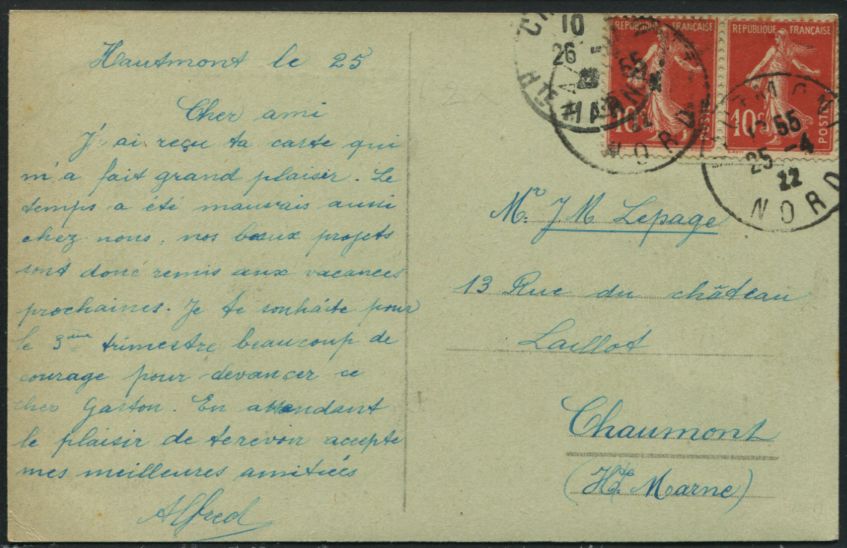 Hautmont le 25
Cher ami
J'ai reçu ta carte qui
m'a fait grand plaisir. Le
temps a été mauvais aussi
chez nous, nos beaux projets
sont donc remis aux vacances
prochaines. Je te souhaite pour
le 3ème trimestre beaucoup de
courage pour devancer ce
cher Gaston. En attendant
le plaisir de te revoir accepte
mes meilleures amitiées
Alfred
REPUBLIQUE FRANÇAISE
10c
POSTES
REPUBLIQUE FRANÇAISE
10c
POSTES
10
26
55
22
NORD
55
25-4
22
NORD
Mr J M Lepage
13 Rue du château
Laillot
Chaumont
(Hte Marne)